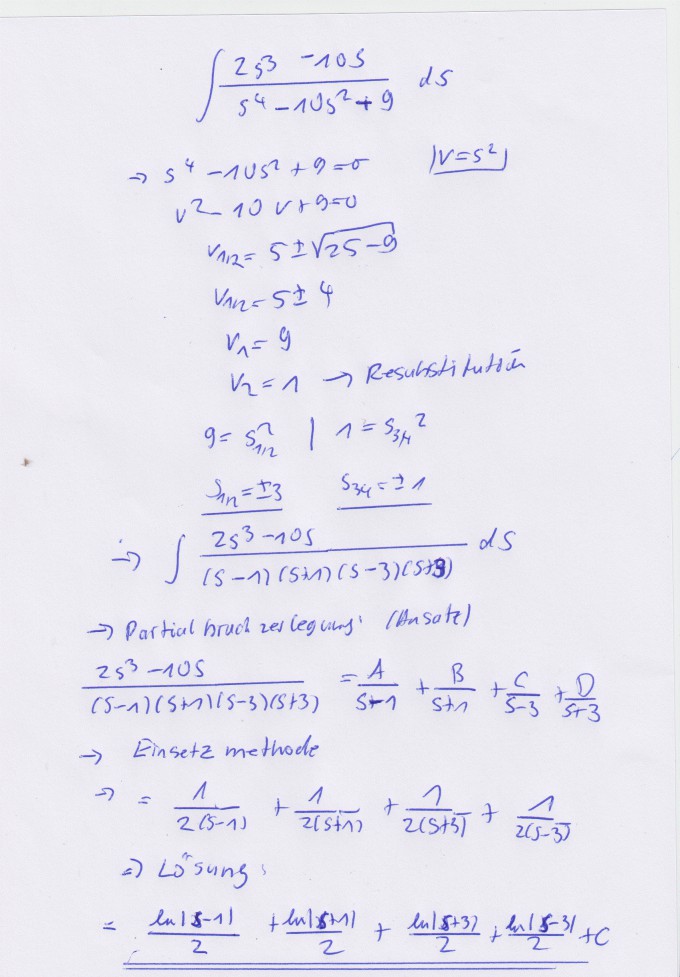 ∫ (2s³ - 10s)/(s⁴ - 10s² + 9) ds
→ s⁴ - 10s² + 9 = 0 |v = s²|
v² - 10v + 9 = 0
v₁/₂ = 5 ± √(25 - 9)
v₁/₂ = 5 ± 4
v₁ = 9
v₂ = 1 → Resubstitution
9 = s₁/₂² | 1 = s₃/₄²
s₁/₂ = ±3 s₃/₄ = ±1
→ ∫ (2s³ - 10s)/((s-1)(s+1)(s-3)(s+3)) ds
→ Partialbruchzerlegung: (Ansatz)
(2s³ - 10s)/((s-1)(s+1)(s-3)(s+3)) = A/(s-1) + B/(s+1) + C/(s-3) + D/(s+3)
→ Einsetzmethode
→ = 1/(2(s-1)) + 1/(2(s+1)) + 1/(2(s+3)) + 1/(2(s-3))
⇒ Lösung:
= ln|s-1|/2 + ln|s+1|/2 + ln|s+3|/2 + ln|s-3|/2 + C